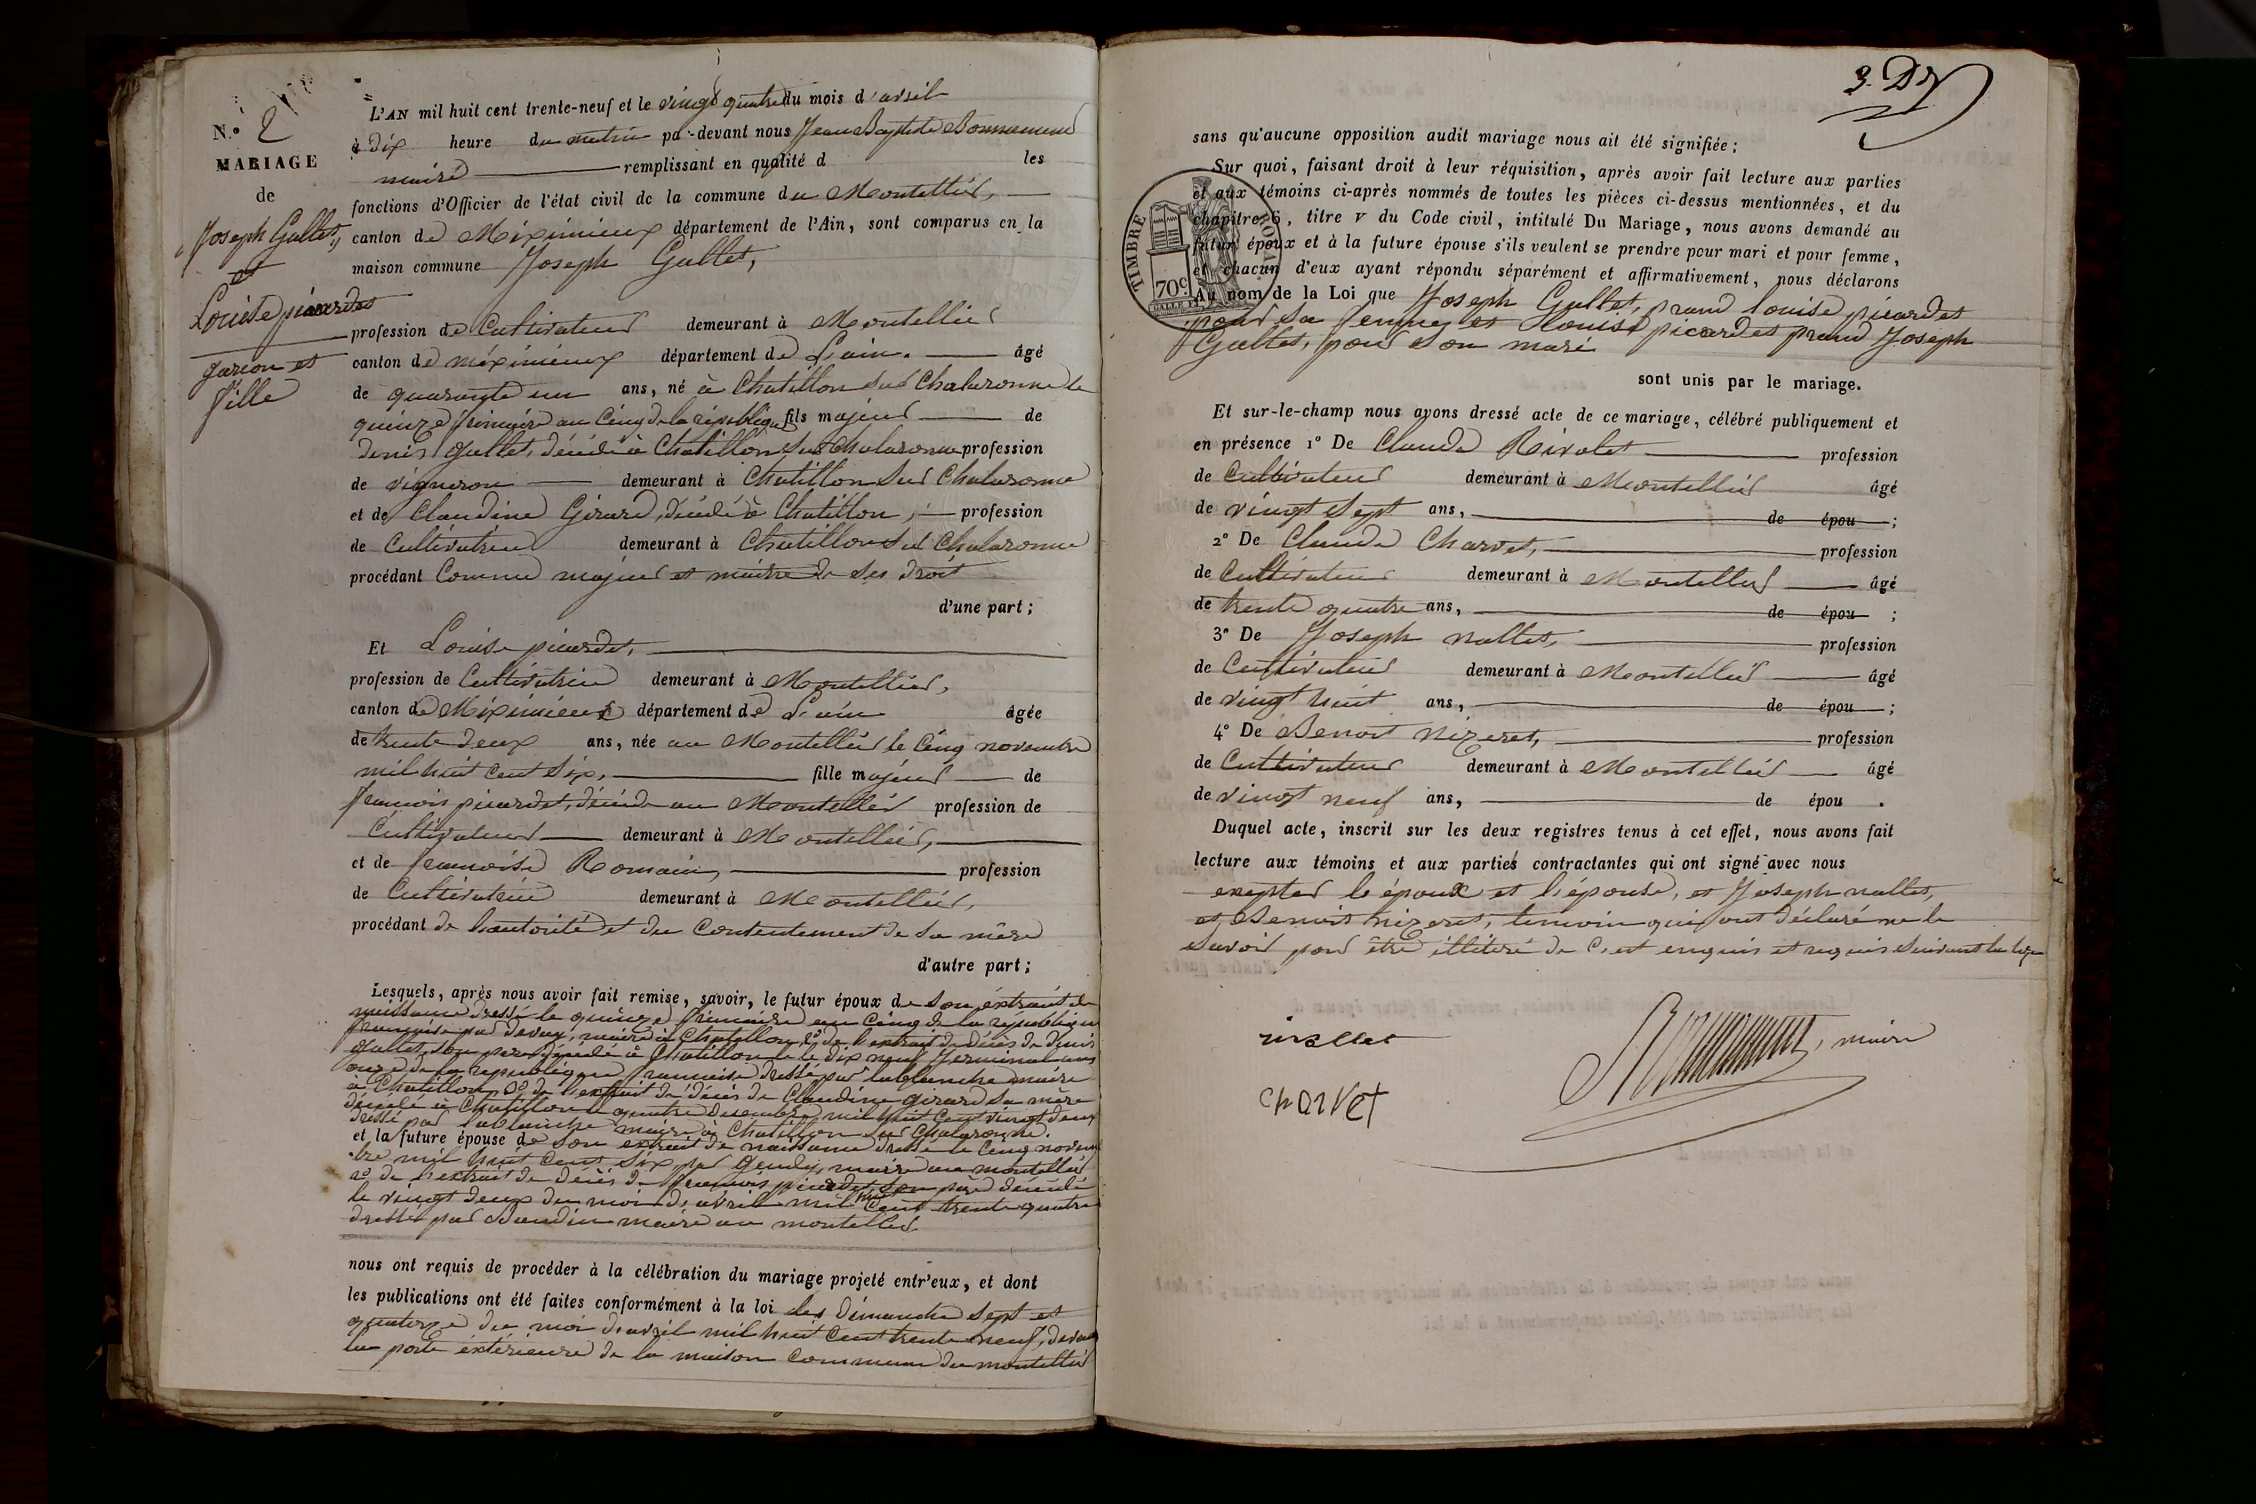 N.º 2
MARIAGE
de
Joseph Gallet,
et
Louise picardet
garcon et
fille
L'AN mil huit cent trente-neuf et le vingt quatre du mois d'avril
à dix heure du matin par-devant nous Jean Baptiste
maire remplissant en qualité d les
fonctions d'Officier de l'état civil de la commune du Montellier,
canton de Méximieux département de l'Ain, sont comparus en la
maison commune Joseph Gallet,
profession de Cultivateur demeurant à Montellier
canton de méximieux département de L'ain. âgé
de quarante un ans, né à Chatillon sur Chalaronne le
quinze frimaire an Cinq de la républiq fils majeur de
denis gallet, décédé à Chatillon sur Chalaronne profession
de vigneron demeurant à Chatillon sur Chalaronne
et de Claudine Girard, décédé à Chatillon, profession
de Cultivatrice demeurant à Chatillon sur Chalaronne
procédant Comme majeur et maitre de ses droit
d'une part;
Et Louise picardet,
profession de Cultivatrice demeurant à Montellier,
canton de Méximieux département de L'ain âgée
de trente deux ans, née au Montellier le Cinq novembre
mil huit cent six, fille majeur de
francois picardet, décédé au Montellier profession de
Cultivateur demeurant à Montellier,
et de francoise Romain, profession
de Cultivatrice demeurant à Montellier,
procédant de l'autorité et du Contentement de sa mère
d'autre part;
Lesquels, après nous avoir fait remise, savoir, le futur époux de son extrait de
naissance dressé le quinze frimaire an Cinq de la république
française par maire à Chatillon, 2º de l'extrait de décès de denis
gallet, son pere décédé à Chatillon le dix neuf germinal ans
onze de la republique francaise dressé par lablanche maire
à Chatillon 3º de l'extrait de décès de Claudine girard sa mère
décédé à Chatillon le quatre decembre mil huit Cent vingt deux
dressé par lablanche maire à Chatillon sur Chalaronne.
et la future épouse de son extrait de naissance dressé le Cinq novem
bre mil huit Cent six par maire au montellier
2º de l'extrait de décès de francois picardet, son père décédé
le vingt deux du moi d'avril mil huit Cent trente quatre
dressé par Baudin maire au montellier
nous ont requis de procéder à la célébration du mariage projeté entr'eux, et dont
les publications ont été faites conformément à la loi les dimanche sept et
quatorze du moi d'avril mil huit Cent trente neuf, devan
la porte éxtérieure de la maison Commune du montellier
3.
sans qu'aucune opposition audit mariage nous ait été signifiée;
Sur quoi, faisant droit à leur réquisition, après avoir fait lecture aux parties
et aux témoins ci-après nommés de toutes les pièces ci-dessus mentionnées, et du
chapitre 6, titre V du Code civil, intitulé Du Mariage, nous avons demandé au
futur époux et à la future épouse s'ils veulent se prendre pour mari et pour femme,
et chacun d'eux ayant répondu séparément et affirmativement, nous déclarons
Au nom de la Loi que Joseph Gallet, prand louise picardet
pour sa femme, et Louise picardet prand Joseph
Gallet, pour son mari
sont unis par le mariage.
TIMBRE ROYAL
70c.
Et sur-le-champ nous avons dressé acte de ce mariage, célébré publiquement et
en présence 1º De Claude Rivolet profession
de Cultivateur demeurant à Montellier âgé
de vingt sept ans, de épou ;
2º De Claude Charvet, profession
de Cultivateur demeurant à Montellier âgé
de trente quatre ans, de épou ;
3º De Joseph nallet, profession
de Cultivateur demeurant à Montellier âgé
de vingt huit ans, de épou ;
4º De Benoit nizeret, profession
de Cultivateur demeurant à Montellier âgé
de vingt neuf ans, de épou .
Duquel acte, inscrit sur les deux registres tenus à cet effet, nous avons fait
lecture aux témoins et aux parties contractantes qui ont signé avec nous
excepter le époux et l'épouse, et Joseph nallet,
et Benoit nizeret, temoin qui ont déclaré ne le
savoir pour être illitéré de C. est enquis et requis suivant la loi
charvet
maire